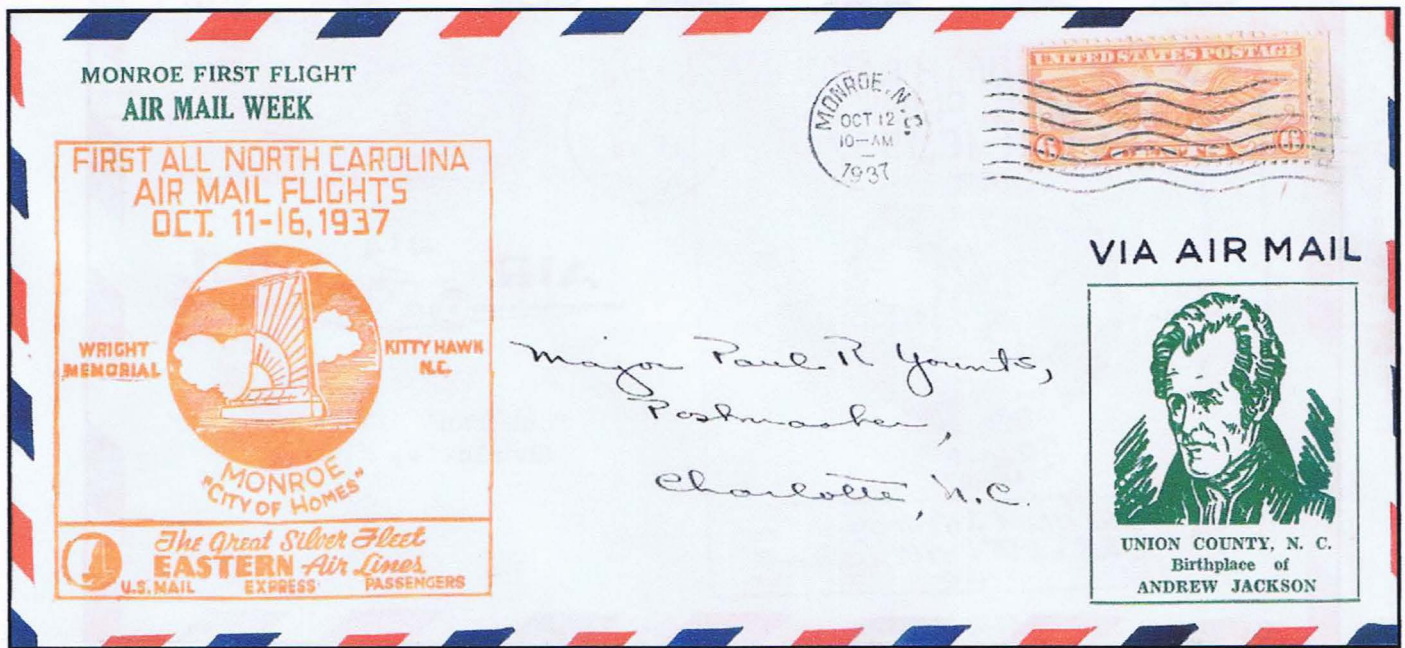 MONROE FIRST FLIGHT
AIR MAIL WEEK
FIRST ALL NORTH CAROLINA
AIR MAIL FLIGHTS
OCT. 11-16, 1937
WRIGHT
MEMORIAL
KITTY HAWK
N.C.
MONROE
"CITY OF HOMES"
The Great Silver Fleet
EASTERN Air Lines
U.S. MAIL EXPRESS PASSENGERS
MONROE, N.C.
OCT 12
10-AM
1937
UNITED STATES POSTAGE
6 CENTS 6
VIA AIR MAIL
Major Paul R Younts,
Postmaster,
Charlotte, N.C.
UNION COUNTY, N. C.
Birthplace of
ANDREW JACKSON